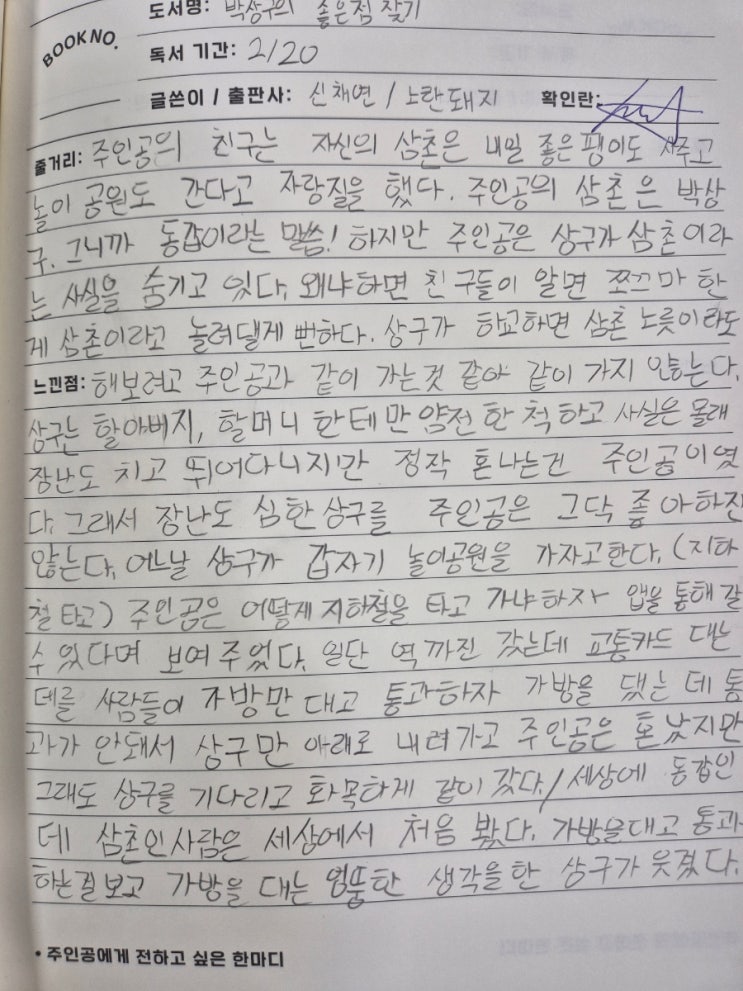 도서명: 박상구의 좋은점 찾기
BOOK NO.
독서 기간: 2/20
글쓴이 / 출판사: 신채연 / 노란돼지 확인란:
줄거리: 주인공의 친구는 자신의 삼촌은 내일 좋은 팽이도 사주고
놀이 공원도 간다고 자랑질을 했다. 주인공의 삼촌은 박상
구. 그니까 동갑이라는 말씀! 하지만 주인공은 상구가 삼촌이라
는 사실을 숨기고 있다. 왜냐하면 친구들이 알면 쪼끄마 한
게 삼촌이라고 놀려댈게 뻔하다. 상구가 하교하면 삼촌 노릇이라도
느낀점: 해보려고 주인공과 같이 가는것 같아 같이 가지 않는다.
상구는 할아버지, 할머니 한테만 얌전 한 척 하고 사실은 몰래
장난도 치고 뛰어다니지만 정작 혼나는건 주인공이였
다. 그래서 장난도 심한 상구를 주인공은 그닥 좋아하진
않는다. 어느날 상구가 갑자기 놀이공원을 가자고한다. (지하
철 타고) 주인공은 어떻게 지하철을 타고 가냐하자 앱을 통해 갈
수 있다며 보여 주었다. 일단 역까진 갔는데 교통카드 대는
데를 사람들이 가방만 대고 통과하자 가방을 댔는 데 통
과가 안돼서 상구만 아래로 내려가고 주인공은 혼났지만
그래도 상구를 기다리고 화목하게 같이 갔다. / 세상에 동갑인
데 삼촌인 사람은 세상에서 처음 봤다. 가방을대고 통과
하는걸 보고 가방을 대는 엉뚱한 생각을 한 상구가 웃겼다.
• 주인공에게 전하고 싶은 한마디